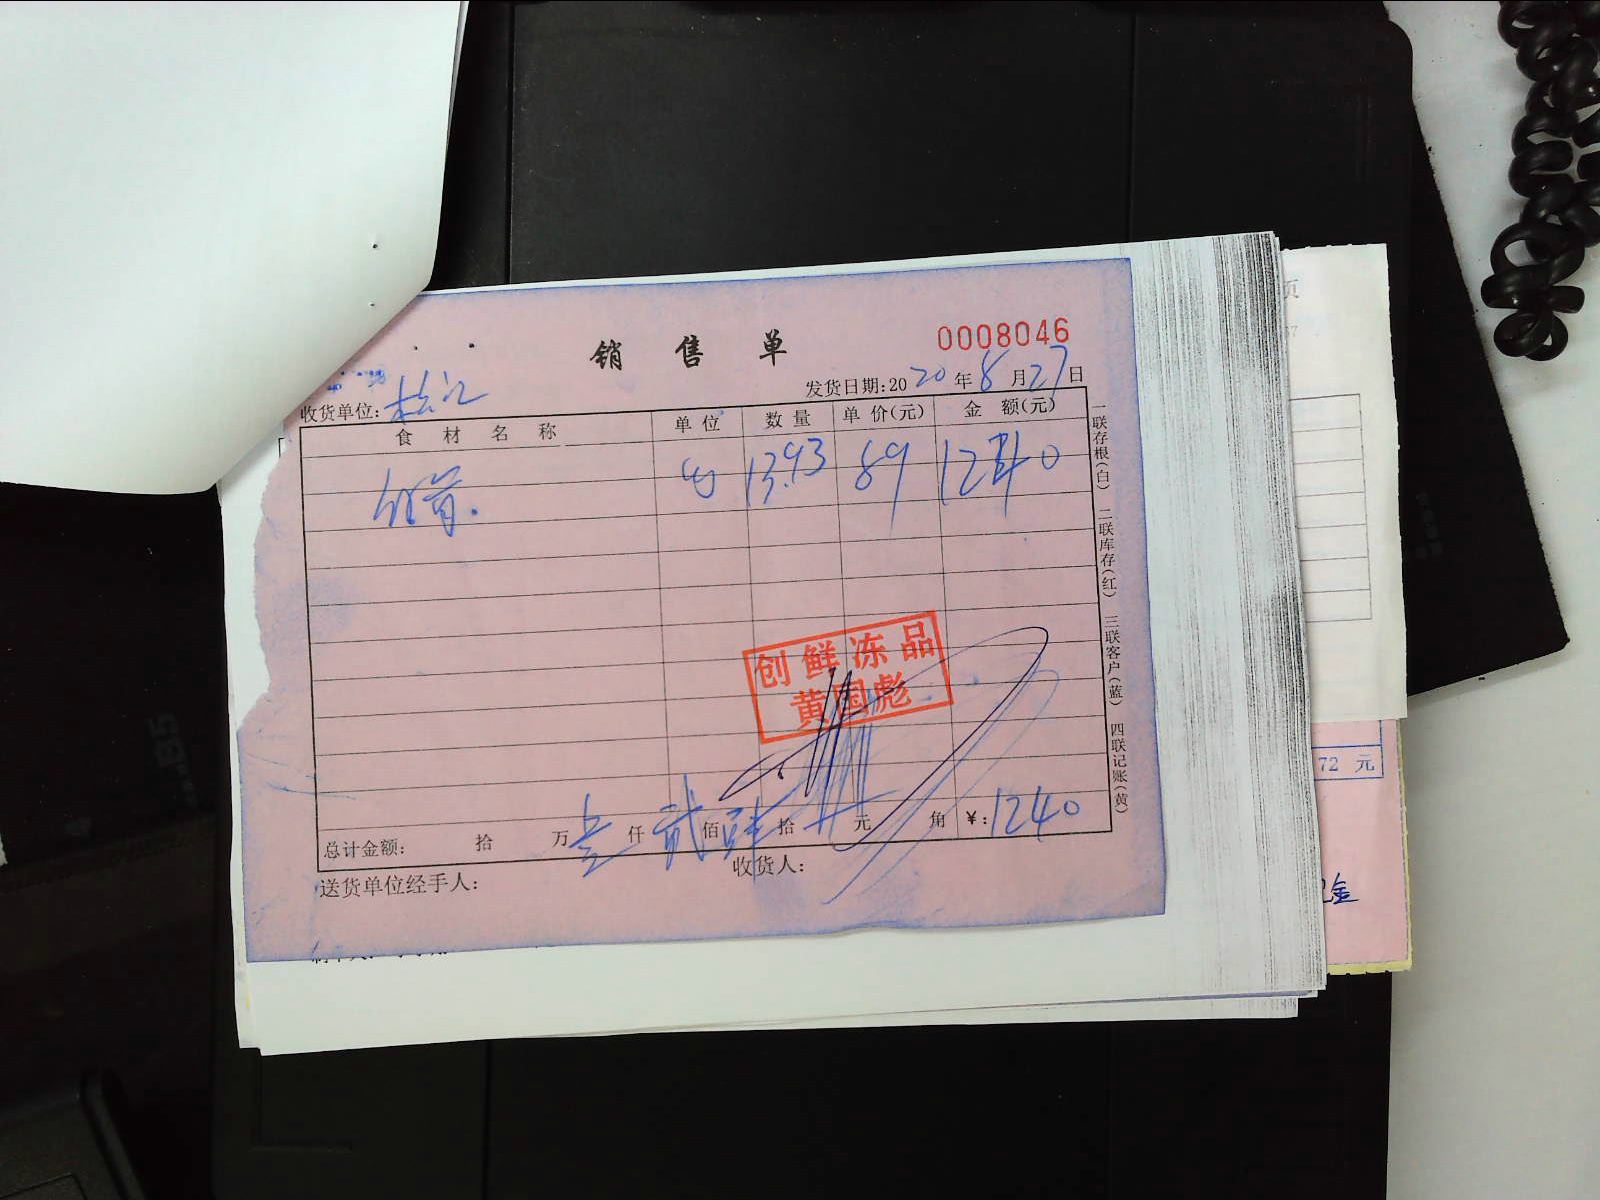 销 售 单
0008046
收货单位: 松江
发货日期:2020年8月27日
食 材 名 称 单位 数量 单价(元) 金 额(元)
13.93 89 1240
创鲜冻品
黄国彪
总计金额: 拾 万 壹 仟 贰 佰 肆 拾 元 角 ¥:1240
送货单位经手人: 收货人:
一联存根(白) 二联库存(红) 三联客户(蓝) 四联记账(黄)
页
72 元
金
B5